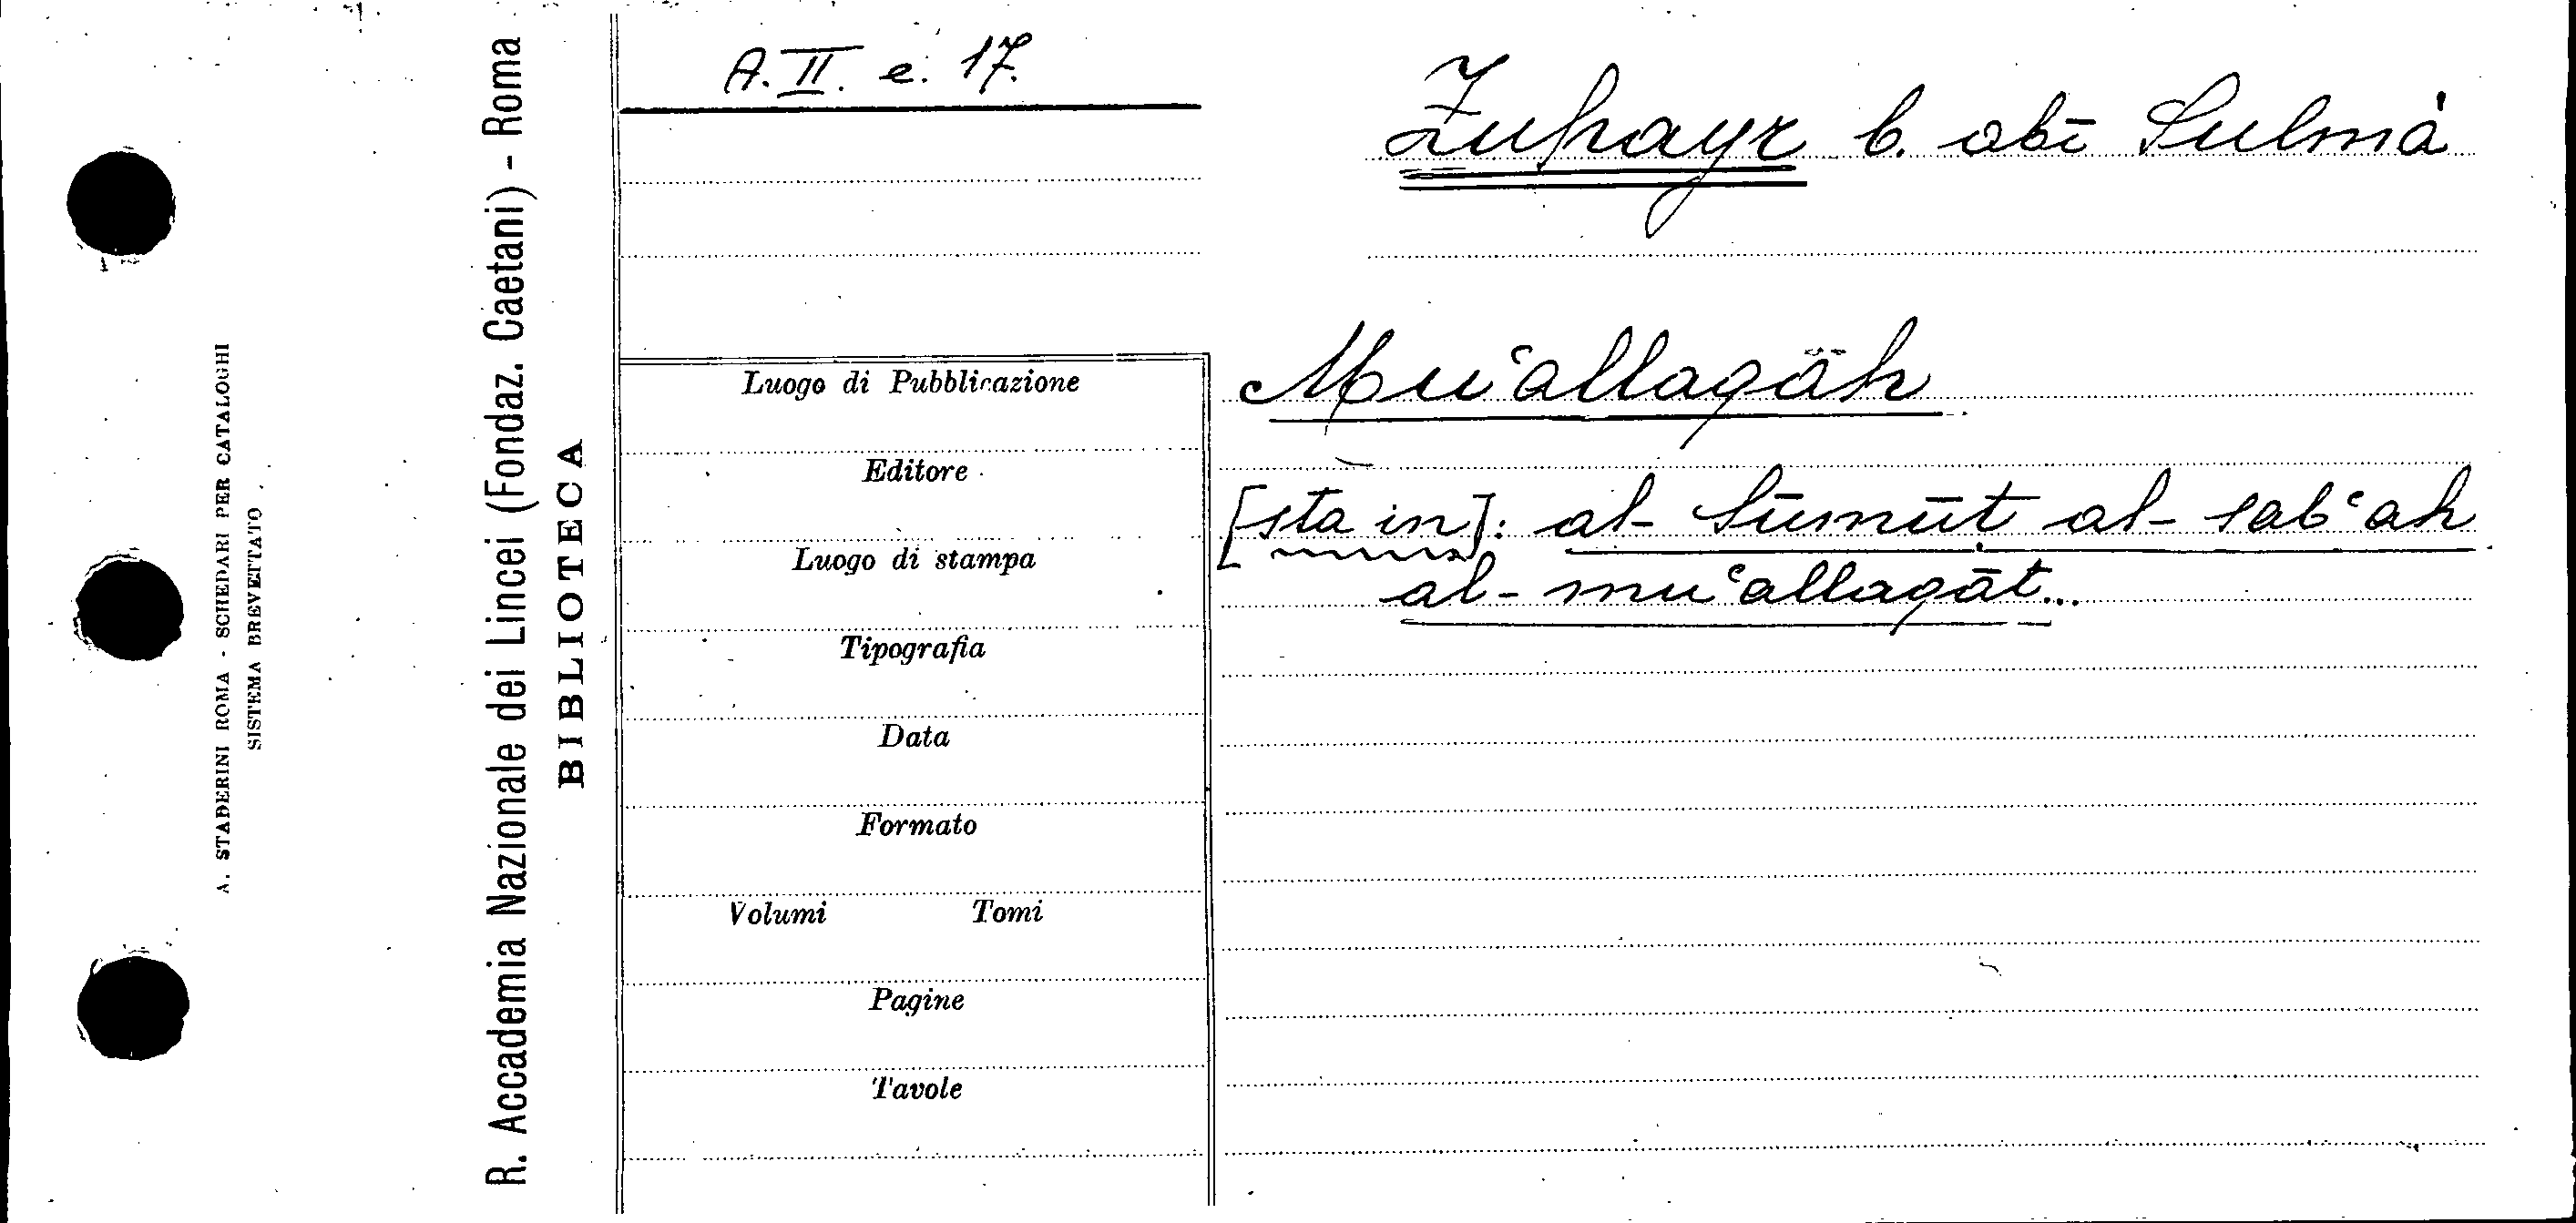 A. II. e. 17.
Zuhayr b. abī Sulmà
Mu‘allaqāh
[sta in]: al-Sūmūṭ al-sab‘ah
al-mu‘allaqāt...
Luogo di Pubblicazione
Editore
Luogo di stampa
Tipografia
Data
Formato
Volumi Tomi
Pagine
Tavole
R. Accademia Nazionale dei Lincei (Fondaz. Caetani) - Roma
BIBLIOTECA
A. STADERINI ROMA - SCHEDARI PER CATALOGHI
SISTEMA BREVETTATO